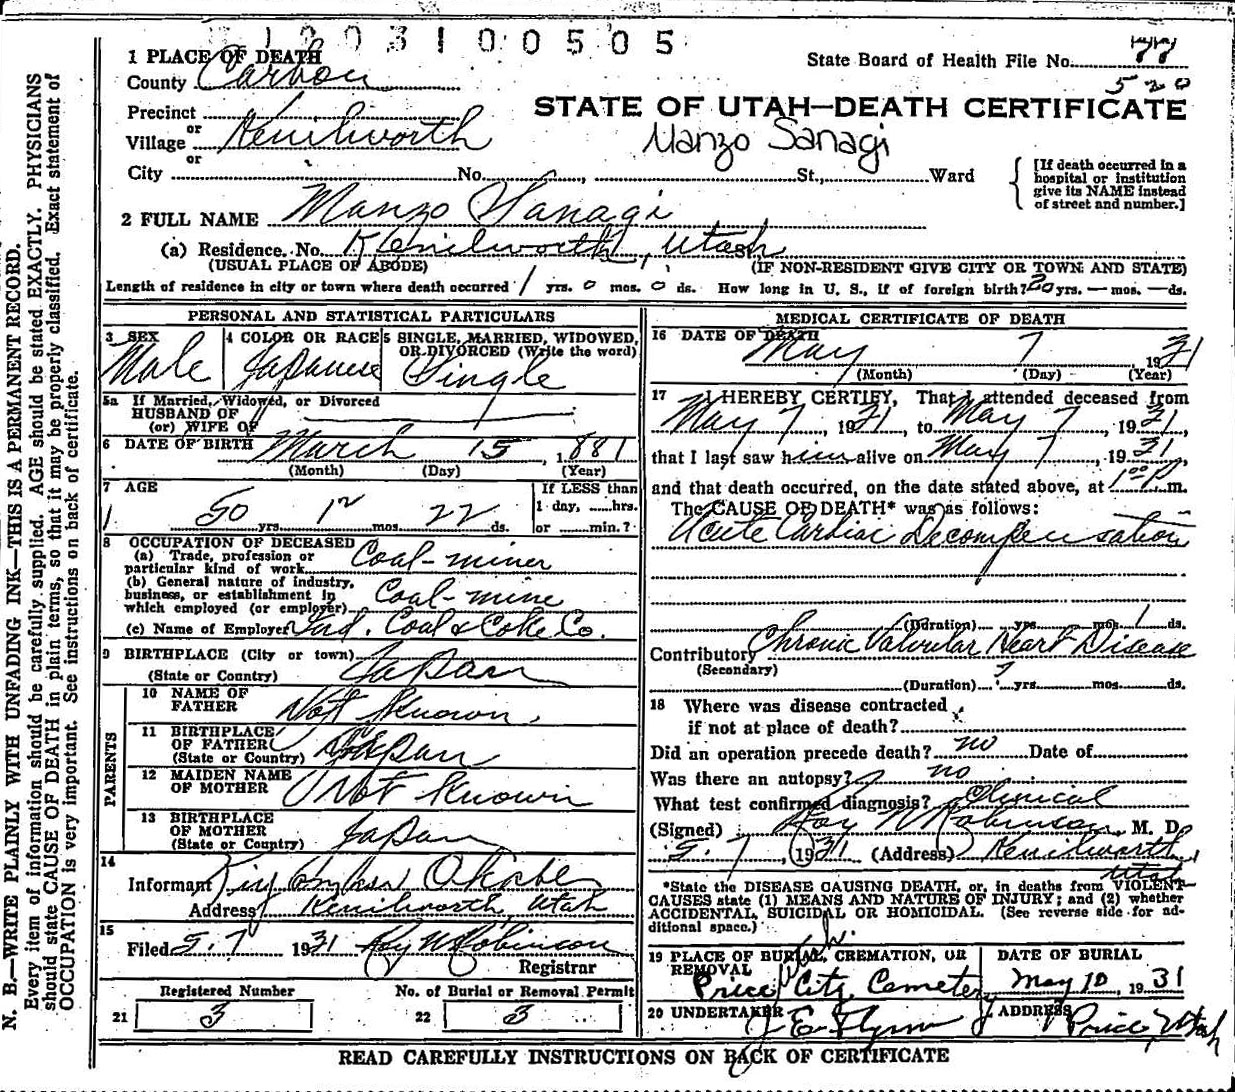 1003100505
1 PLACE OF DEATH
County Carbon
State Board of Health File No. 77
520
Precinct
or
Village Kenilworth
or
STATE OF UTAH—DEATH CERTIFICATE
Manzo Sanagi
City No. , St., Ward
[If death occurred in a hospital or institution give its NAME instead of street and number.]
2 FULL NAME Manzo Sanagi
(a) Residence. No. Kenilworth, Utah
(USUAL PLACE OF ABODE) (IF NON-RESIDENT GIVE CITY OR TOWN AND STATE)
Length of residence in city or town where death occurred 1 yrs. 0 mos. 0 ds. How long in U. S., if of foreign birth? 20 yrs. — mos. — ds.
PERSONAL AND STATISTICAL PARTICULARS
3 SEX Male
4 COLOR OR RACE Japanese
5 SINGLE, MARRIED, WIDOWED, OR DIVORCED (Write the word) Single
5a If Married, Widowed, or Divorced
HUSBAND OF
(or) WIFE OF
6 DATE OF BIRTH March 15, 1881
(Month) (Day) (Year)
7 AGE
50 yrs. 1 mos. 22 ds.
If LESS than
1 day, hrs.
or min.?
8 OCCUPATION OF DECEASED
(a) Trade, profession or
particular kind of work Coal-miner
(b) General nature of industry,
business, or establishment in
which employed (or employer) Coal-mine
(c) Name of Employer Ind. Coal & Coke Co.
9 BIRTHPLACE (City or town)
(State or Country) Japan
PARENTS
10 NAME OF
FATHER Not Known
11 BIRTHPLACE
OF FATHER
(State or Country) Japan
12 MAIDEN NAME
OF MOTHER Not Known
13 BIRTHPLACE
OF MOTHER
(State or Country) Japan
14
Informant
Address Kenilworth, Utah
15
Filed 5. 7 1931 Roy W Robinson
Registrar
Registered Number
21 3
No. of Burial or Removal Permit
22 3
MEDICAL CERTIFICATE OF DEATH
16 DATE OF DEATH
May 7 1931
(Month) (Day) (Year)
17 I HEREBY CERTIFY, That I attended deceased from
May 7, 1931, to May 7, 1931,
that I last saw him alive on May 7, 1931,
and that death occurred, on the date stated above, at 1:00 P m.
The CAUSE OF DEATH* was as follows:
Acute Cardiac Decompensation
(Duration) yrs. mos. 1 ds.
Contributory Chronic Valvular Heart Disease
(Secondary)
(Duration) ? yrs. mos. ds.
18 Where was disease contracted
if not at place of death?
Did an operation precede death? no Date of
Was there an autopsy? no
What test confirmed diagnosis? Clinical
(Signed) Roy W Robinson, M. D.
5. 7, 1931 (Address) Kenilworth, Utah
*State the DISEASE CAUSING DEATH, or, in deaths from VIOLENT
CAUSES state (1) MEANS AND NATURE OF INJURY; and (2) whether
ACCIDENTAL, SUICIDAL OR HOMICIDAL. (See reverse side for ad-
ditional space.)
19 PLACE OF BURIAL, CREMATION, OR
REMOVAL
Price City Cemetery Utah
DATE OF BURIAL
May 10, 1931
20 UNDERTAKER J E Flynn
ADDRESS Price, Utah
READ CAREFULLY INSTRUCTIONS ON BACK OF CERTIFICATE
N. B.—WRITE PLAINLY WITH UNFADING INK—THIS IS A PERMANENT RECORD.
Every item of information should be carefully supplied. AGE should be stated EXACTLY. PHYSICIANS
should state CAUSE OF DEATH in plain terms, so that it may be properly classified. Exact statement of
OCCUPATION is very important. See instructions on back of certificate.